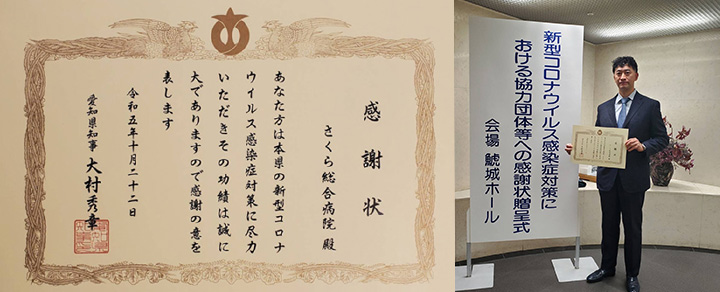 感謝状
さくら総合病院 殿
あなた方は本県の新型コロナ
ウイルス感染症対策に尽力
いただきその功績は誠に
大でありますので感謝の意を
表します
令和五年十月二十二日
愛知県知事 大村秀章
新型コロナウイルス感染症対策に
おける協力団体等への感謝状贈呈式
会場 鯱城ホール